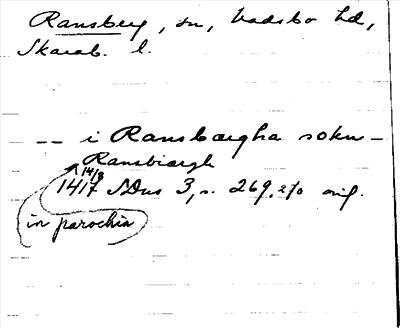 Ransberg, sn, Vadsbo hd,
Skarab. l.
-- i Ransbærgha sokn –
Ransbiærgh
14/8
1417 SDns 3, s. 269, 270 orig.
in parochia